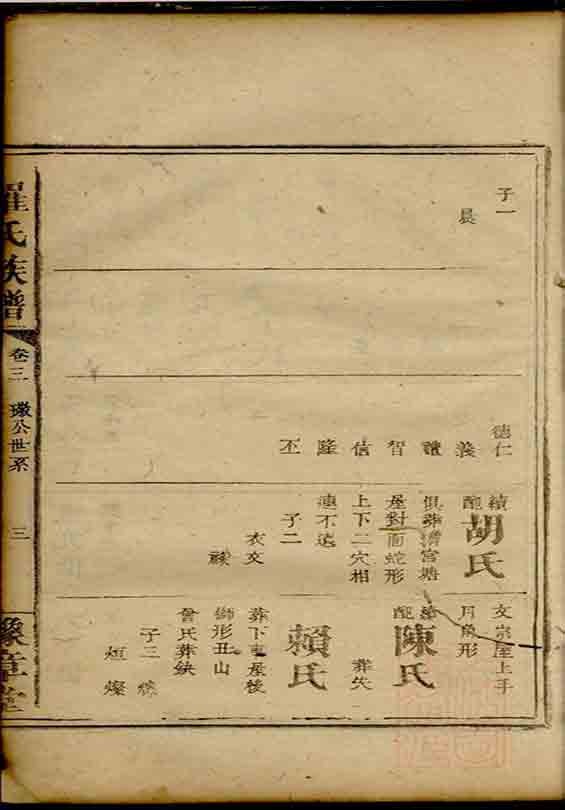 子一
晨
德仁
義
禮
智
信
隆
丕
續
配胡氏
俱葬漕宮塘
屋對面蛇形
上下二穴相
連不遠
子二
衣文
文崇屋上手
月魚形
配陳氏
葬失
賴氏
葬下車屋後
獅形丑山
曾氏葬缺
子三
烜 燦
羅氏族譜
卷三
璥公世系
三
豫章堂